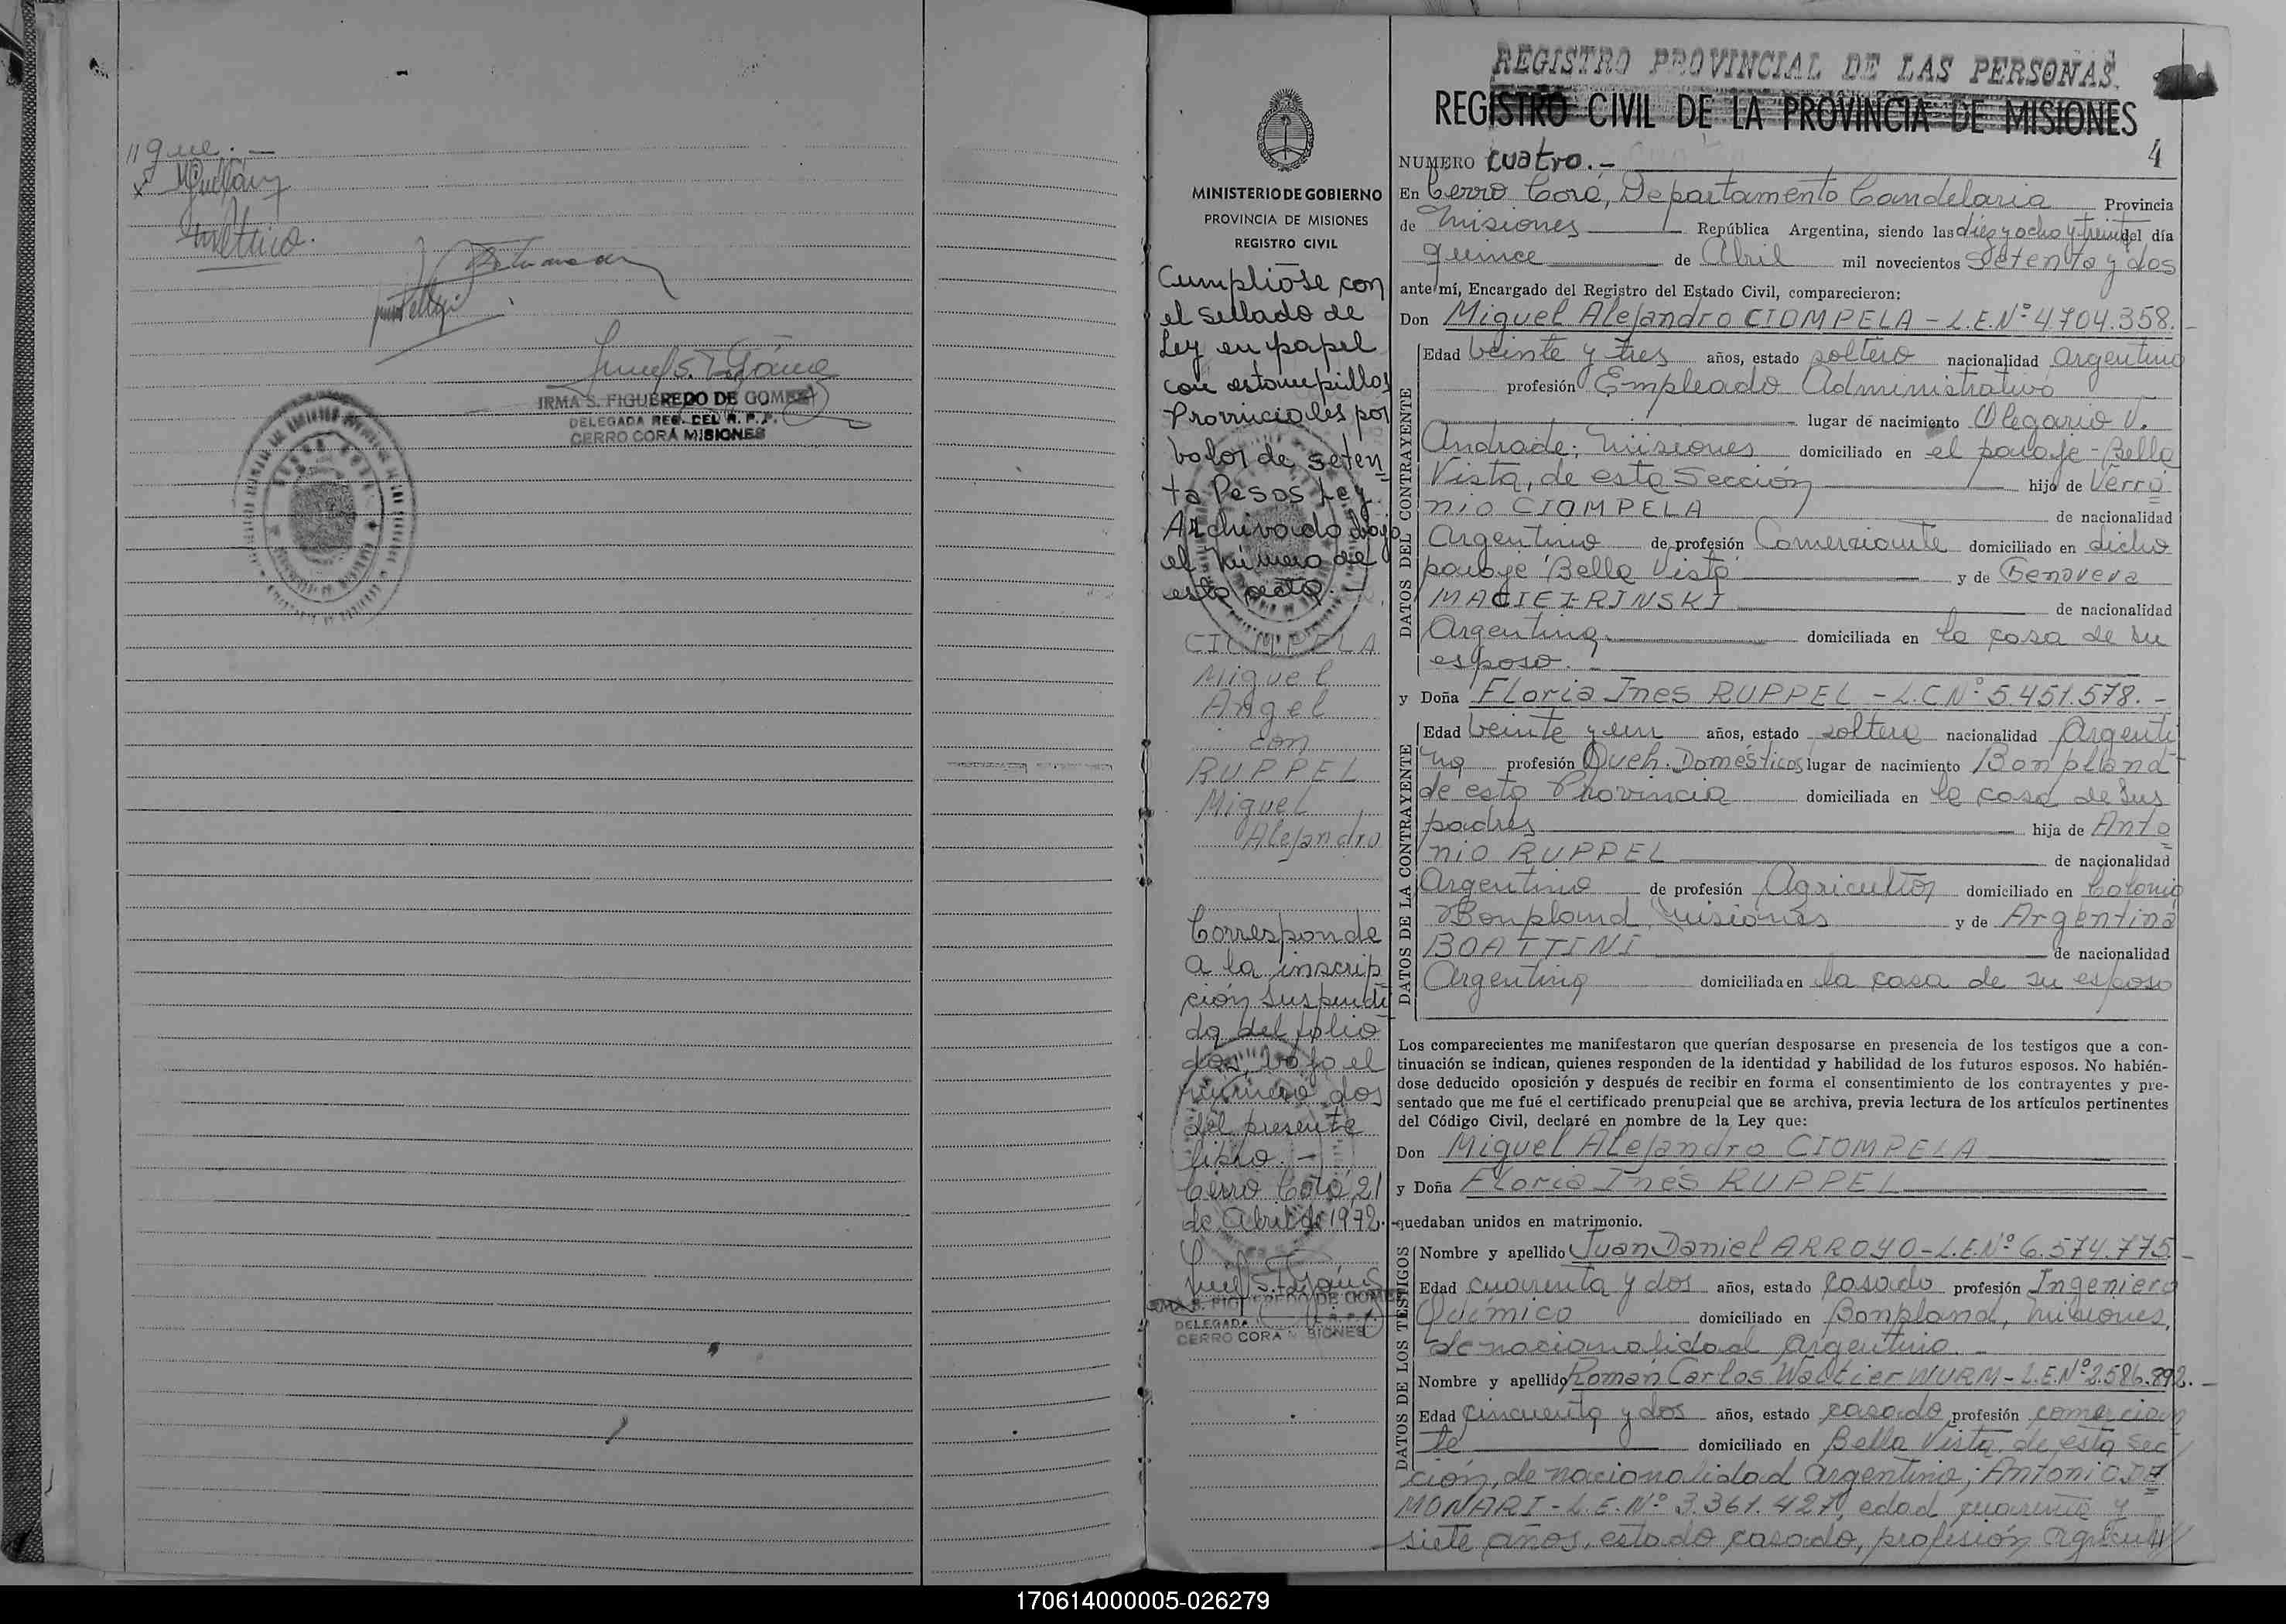 //que.-
IRMA S. FIGUEREDO DE GOMEZ
DELEGADA REG. DEL R. P. P.
CERRO CORÁ MISIONES
MINISTERIO DE GOBIERNO
PROVINCIA DE MISIONES
REGISTRO CIVIL
Cumplióse con
el sellado de
Ley en papel
con estampillas
Provinciales por
valor de seten
ta Pesos Ley.
Archivado bajo
el número de
esta acta.-
CIOMPELA
Miguel
Angel
con
RUPPEL
Miguel
Alejandro
Corresponde
a la inscrip
ción suspendi
da del folio
dos, bajo el
número dos
del presente
libro.-
Cerro Corá, 21
de Abril de 1972.-
DELEGADA
CERRO CORA MISIONES
REGISTRO PROVINCIAL DE LAS PERSONAS.
REGISTRO CIVIL DE LA PROVINCIA DE MISIONES
NUMERO cuatro.- 4
En Cerro Corá, Departamento Candelaria Provincia
de Misiones República Argentina, siendo las diez y ocho y treinta del día
quince de Abril mil novecientos setenta y dos
ante mí, Encargado del Registro del Estado Civil, comparecieron:
Don Miguel Alejandro CIOMPELA - L.E.Nº 4.704.358.-
DATOS DEL CONTRAYENTE
Edad veinte y tres años, estado soltero nacionalidad argentino
profesión Empleado Administrativo
lugar de nacimiento Olegario V.
Andrade; Misiones domiciliado en el paraje - Bella
Vista, de esta Sección hijo de Verró
nio CIOMPELA de nacionalidad
Argentino de profesión Comerciante domiciliado en dicho
paraje Bella Vista y de Genoveva
MACIEZRINSKI de nacionalidad
Argentina. domiciliada en la casa de su
esposo.-
y Doña Floria Inés RUPPEL - L.C Nº 5.451.578.-
DATOS DE LA CONTRAYENTE
Edad veinte y un años, estado soltera nacionalidad Argenti
na profesión Queh. Domésticos lugar de nacimiento Bonpland
de esta Provincia domiciliada en la casa de sus
padres hija de Anto
nio RUPPEL de nacionalidad
Argentino de profesión Agricultor domiciliado en Colonia
Bonpland, Misiones y de Argentina
BOATTINI de nacionalidad
Argentina domiciliada en la casa de su esposo
Los comparecientes me manifestaron que querían desposarse en presencia de los testigos que a con-
tinuación se indican, quienes responden de la identidad y habilidad de los futuros esposos. No habién-
dose deducido oposición y después de recibir en forma el consentimiento de los contrayentes y pre-
sentado que me fué el certificado prenupcial que se archiva, previa lectura de los artículos pertinentes
del Código Civil, declaré en nombre de la Ley que:
Don Miguel Alejandro CIOMPELA
y Doña Floria Inés RUPPEL
quedaban unidos en matrimonio.
DATOS DE LOS TESTIGOS
Nombre y apellido Juan Daniel ARROYO - L.E.Nº 6.574.775.-
Edad cuarenta y dos años, estado casado profesión Ingeniero
Químico domiciliado en Bonpland, Misiones,
de nacionalidad argentino.-
Nombre y apellido Román Carlos Waltier WURM - L.E.Nº 2.586.892.-
Edad cincuenta y dos años, estado casado profesión comercian
te domiciliado en Bella Vista, de esta Sec
ción, de nacionalidad argentino; Antonio DE
MONARI - L.E.Nº 3.361.427, edad cuarenta y
siete años, estado casado, profesión agricul//
170614000005-026279